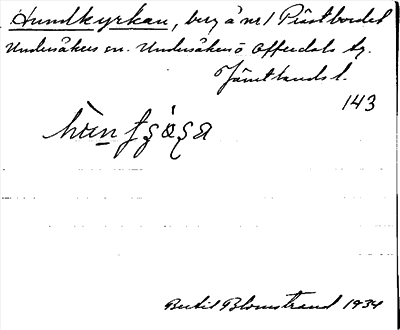 Hundkyrkan, berg å nr 1 Prästbordet
Undersåkers sn. Undersåkers o Offerdals tg.
Jämtlands l.
143
Bertil Blomstrand 1934